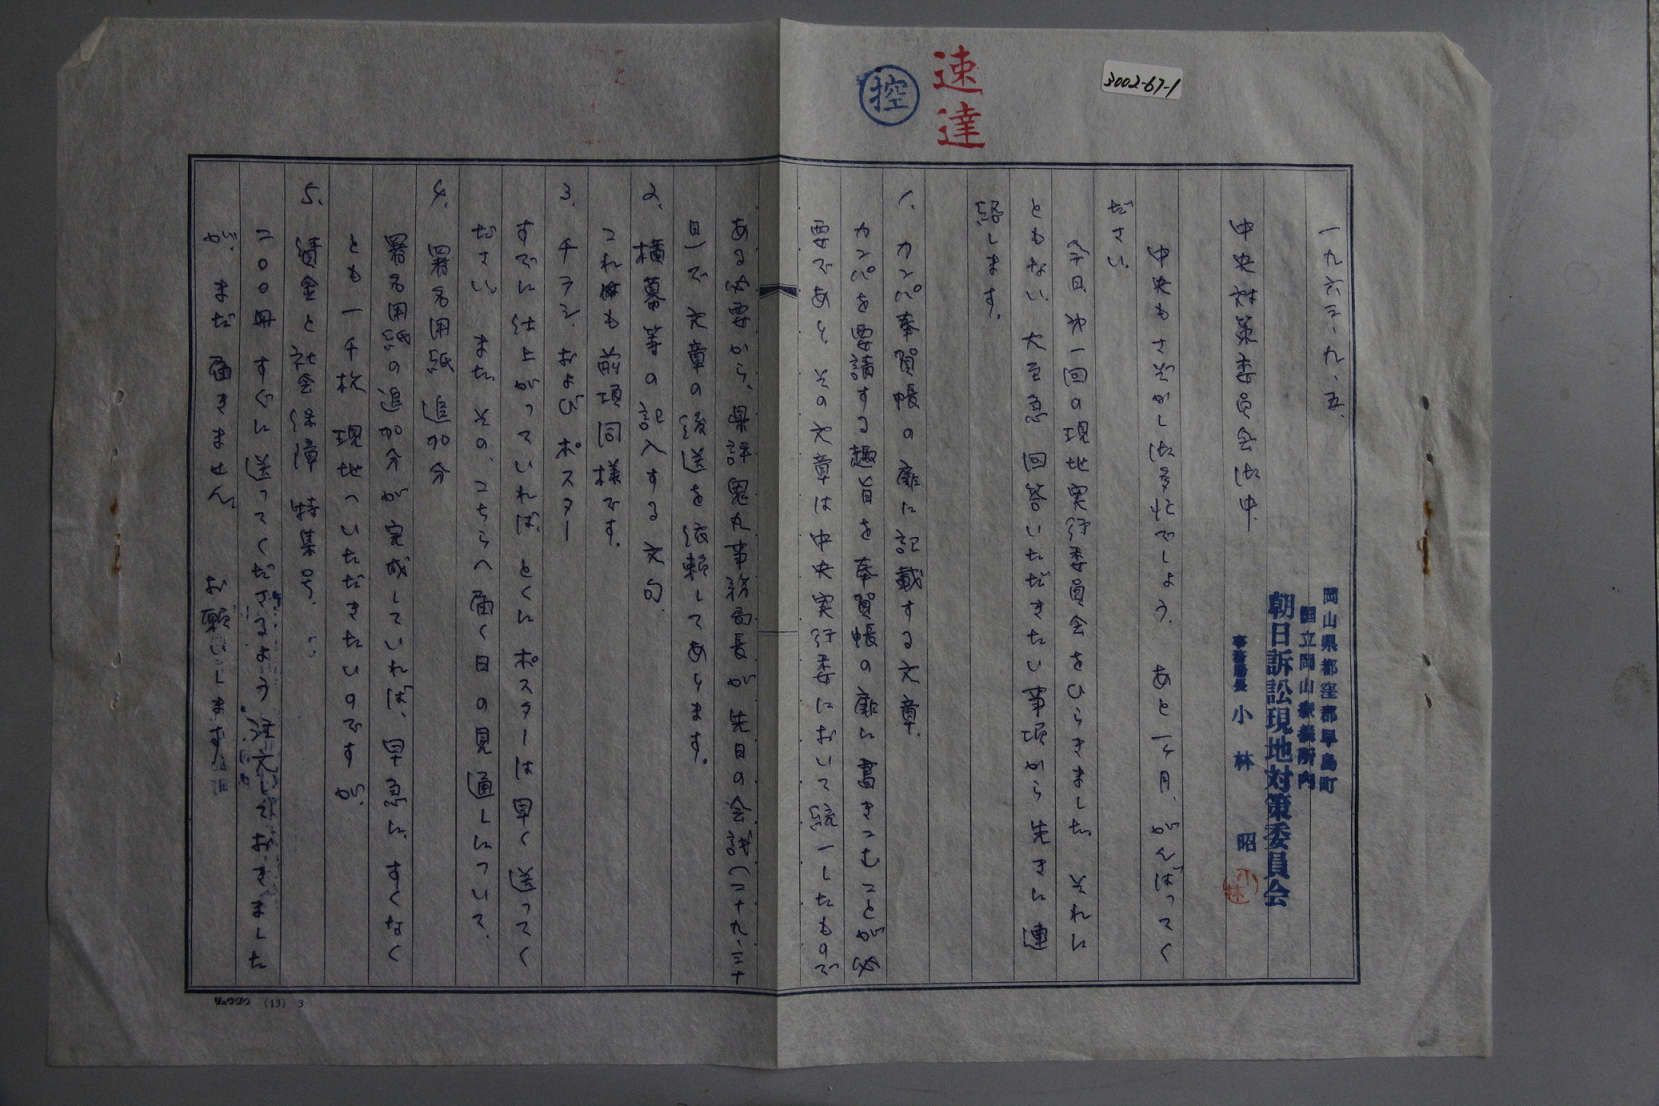 3002-67-1
速達
控
一九六三・九・五.
岡山県都窪郡早島町
国立岡山療養所内
朝日訴訟現地対策委員会
事務局長 小林 昭
小林
中央対策委員会御中.
中央もさぞかし御多忙でしょう. あと一ヶ月、がんばってく
ださい.
今日 才一回の現地実行委員会をひらきました. それに
ともない、大至急 回答いただきたい事項から 先きに連
絡します.
1. カンパ奉賀帳の扉に記載する文章.
カンパを要請する趣旨を奉賀帳の扉に書きこむことが必
要であり、その文章は中央実行委において統一したもので
ある必要から、県評鬼丸事務局長が 先日の会議(二十九、三十
日)で 文章の後送を依頼してあります.
2. 横幕等の記入する文句.
これも前項同様です.
3. チラシ、およびポスター
すでに仕上がっていれば、とくにポスターは早く送ってく
ださい. まだ その、こちらへ届く日の見通しについて、
4. 署名用紙 追加分
署名用紙の追加分が完成していれば、早急に、すくなく
とも一千枚 現地へいただきたいのですが.
5. 賃金と社会保障 特集号.
二〇〇冊 すぐに送ってくださるよう 注文しておきました
が、まだ 届きません. お願いします.
リュウグウ (13) 3